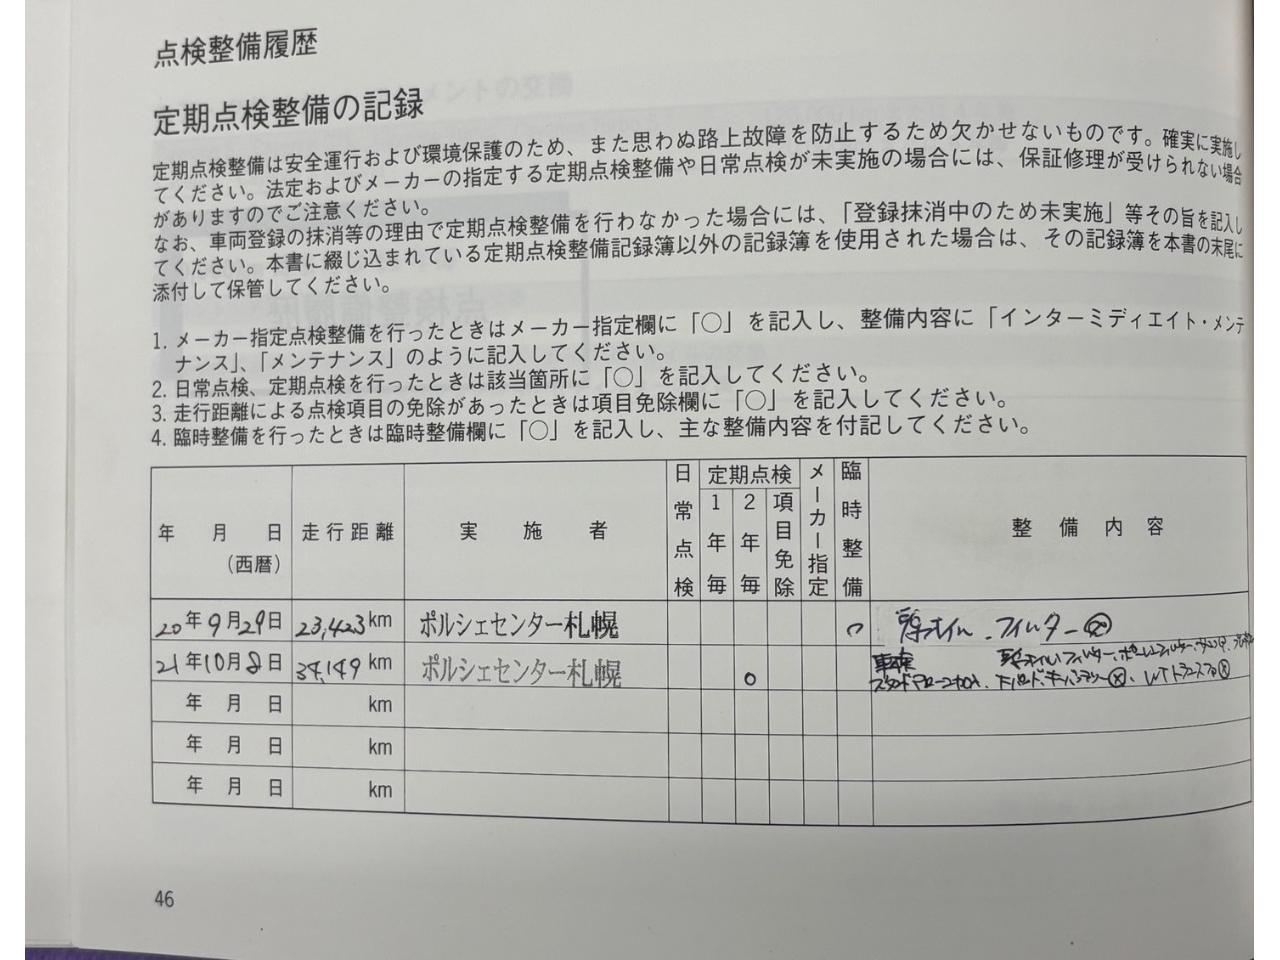 点検整備履歴
定期点検整備の記録
定期点検整備は安全運行および環境保護のため、また思わぬ路上故障を防止するため欠かせないものです。確実に実施し
てください。法定およびメーカーの指定する定期点検整備や日常点検が未実施の場合には、保証修理が受けられない場合
がありますのでご注意ください。
なお、車両登録の抹消等の理由で定期点検整備を行わなかった場合には、「登録抹消中のため未実施」等その旨を記入し
てください。本書に綴じ込まれている定期点検整備記録簿以外の記録簿を使用された場合は、その記録簿を本書の末尾に
添付して保管してください。
1. メーカー指定点検整備を行ったときはメーカー指定欄に「○」を記入し、整備内容に「インターミディエイト・メンテ
ナンス」、「メンテナンス」のように記入してください。
2. 日常点検、定期点検を行ったときは該当箇所に「○」を記入してください。
3. 走行距離による点検項目の免除があったときは項目免除欄に「○」を記入してください。
4. 臨時整備を行ったときは臨時整備欄に「○」を記入し、主な整備内容を付記してください。
年 月 日 (西暦) 走行距離 実施者 日常点検 定期点検 1年毎 2年毎 項目免除 メーカー指定 臨時整備 整備内容
20年9月29日 23,423km ポルシェセンター札幌 ○ オイル、フィルター
21年10月8日 34,149km ポルシェセンター札幌 ○ 車検
年 月 日 km
年 月 日 km
年 月 日 km
46